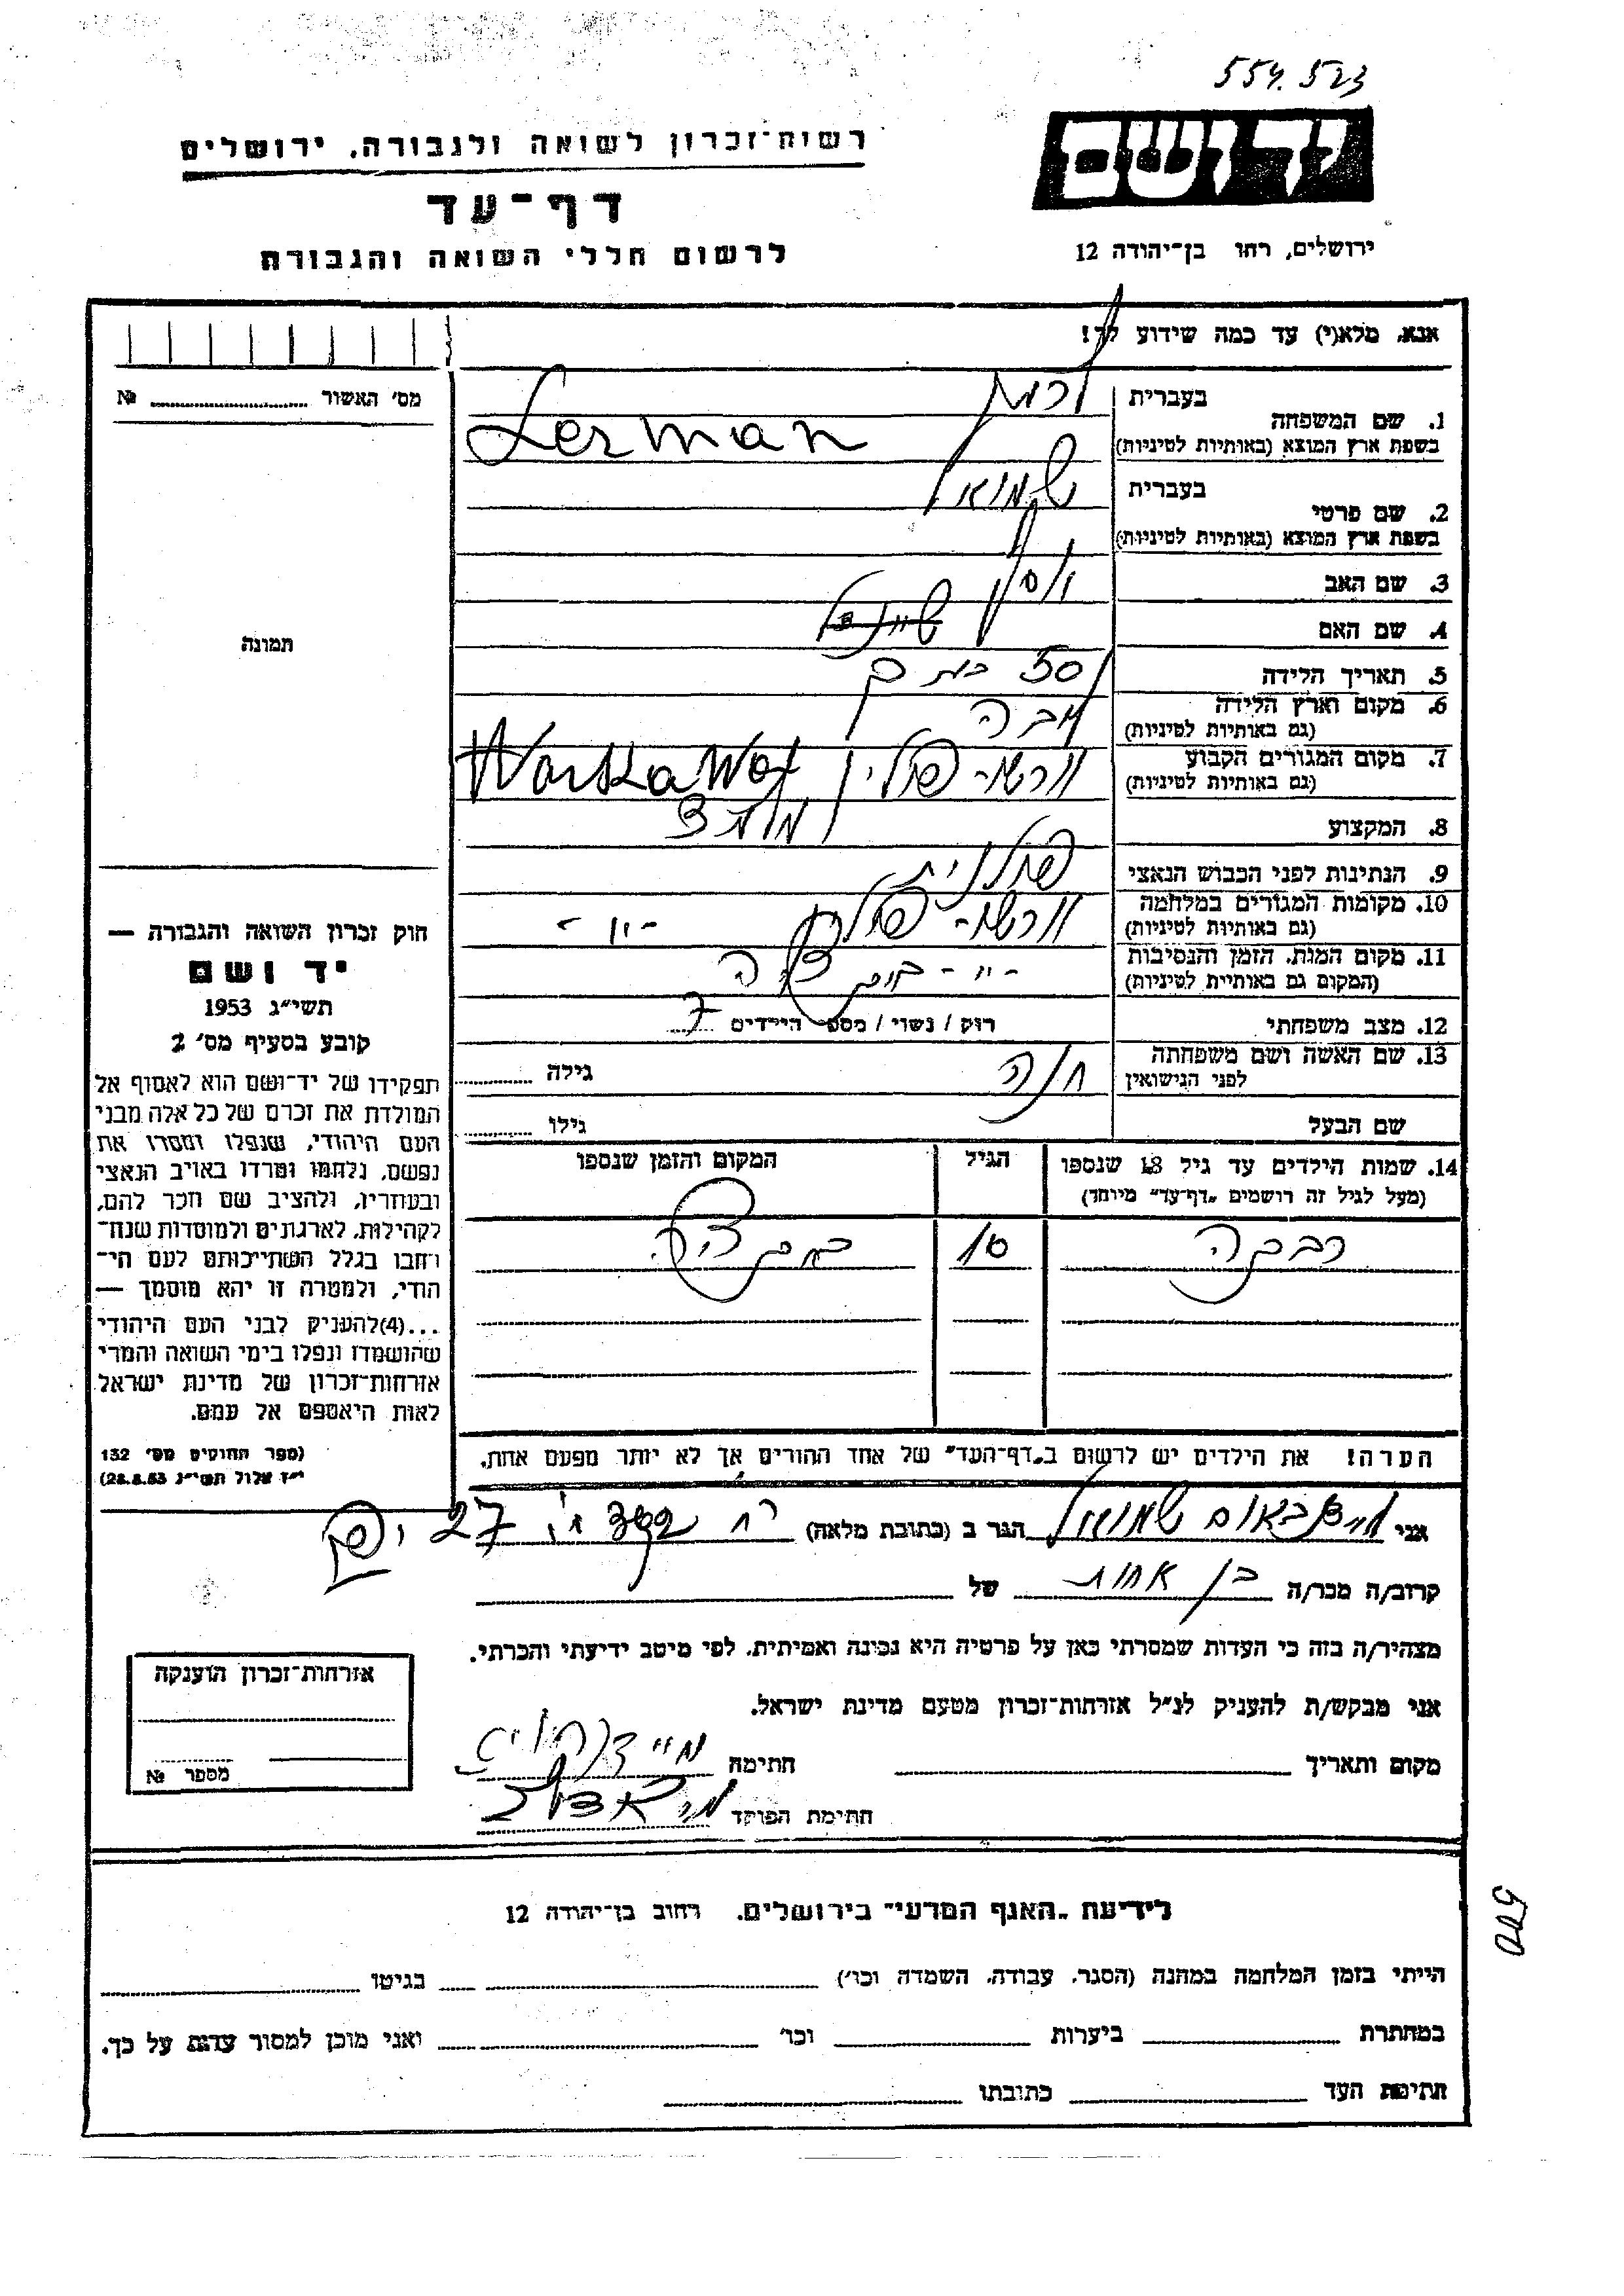 554.523
יד ושם
רשות־זכרון לשואה ולגבורה, ירושלים
דף־עד
לרשום חללי השואה והגבורה
ירושלים, רחו בן־יהודה 12
אנא, מלא(י) עד כמה שידוע לך!
מס' האשור № 
תמונה
1. שם המשפחה בעברית לרמן
בשפת ארץ המוצא (באותיות לטיניות) Lerman
2. שם פרטי בעברית שמואל
בשפת ארץ המוצא (באותיות לטיניות)
3. שם האב
4. שם האם
5. תאריך הלידה 50
6. מקום וארץ הלידה
(גם באותיות לטיניות)
7. מקום המגורים הקבוע ורשה פולין
(גם באותיות לטיניות)
8. המקצוע
9. הנתינות לפני הכבוש הנאצי פולנית
10. מקומות המגורים במלחמה ורשה פולין -״-
(גם באותיות לטיניות)
11. מקום המות, הזמן והנסיבות -״-
(המקום גם באותיית לטיניות)
12. מצב משפחתי רוק / נשוי / מספ' הילדים 7
13. שם האשה ושם משפחתה חנה גילה
לפני הנישואין
שם הבעל גילו
14. שמות הילדים עד גיל 18 שנספו הגיל המקום והזמן שנספו
(מעל לגיל זה רושמים „דף־עד" מיוחד)
רבקה 10
הערה! את הילדים יש לרשום ב„דף־העד" של אחד ההורים אך לא יותר מפעם אחת.
חוק זכרון השואה והגבורה —
יד ושם
תשי״ג 1953
קובע בסעיף מס' 2
תפקידו של יד־ושם הוא לאסוף אל
המולדת את זכרם של כל אלה מבני
העם היהודי, שנפלו ומסרו את
נפשם, נלחמו ומרדו באויב הנאצי
ובעוזריו, ולהציב שם וזכר להם,
לקהילות, לארגונים ולמוסדות שנח־
רחבו בגלל השתייכותם לעם הי־
הודי, ולמטרה זו יהא מוסמך —
...(4)להעניק לבני העם היהודי
שהושמדו ונפלו בימי השואה והמרי
אזרחות־זכרון של מדינת ישראל
לאות היאספם אל עמם.
(ספר החוקים מס' 132
י״ז אלול תשי״ג 28.8.53)
אני שמואל הגר ב (כתובת מלאה) 27 יפו
קרוב/ה מכר/ה בן אחות של
מצהיר/ה בזה כי העדות שמסרתי כאן על פרטיה היא נכונה ואמיתית, לפי מיטב ידיעתי והכרתי.
אני מבקש/ת להעניק לנ״ל אזרחות־זכרון מטעם מדינת ישראל.
מקום ותאריך חתימה
חתימת הפוקד
אזרחות־זכרון הוענקה
מספר №
לידיעת „האגף המדעי" בירושלים, רחוב בן־יהודה 12
הייתי בזמן המלחמה במחנה (הסגר, עבודה, השמדה וכו') בגיטו
במחתרת ביערות וכו' ואני מוכן למסור עדות על כך.
חתימת העד כתובתו